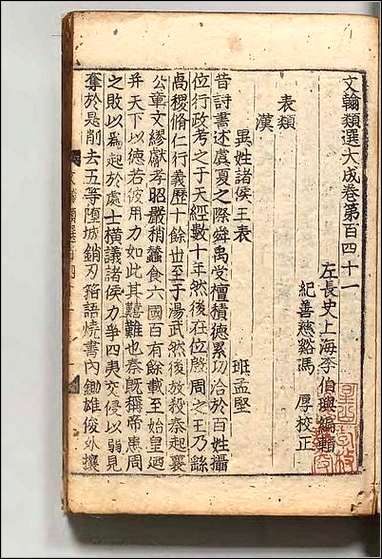 文翰類選大成卷第百四十一
左長史上海李伯璵編輯
紀善慈谿馮 厚校正
表類
漢
異姓諸侯王表 班孟堅
昔詩書述虞夏之際舜禹受禪積德累功洽於百姓攝
位行政考之于天經數十年然後在位殷周之王乃繇
高稷脩仁行義歷十餘世至于湯武然後放殺秦起襄
公章文繆獻孝昭嚴稍蠶食六國百有餘載至始皇迺
幷天下以德若彼用力如此其囏難也秦既稱帝患周
之敗以爲起於處士橫議諸侯力爭四夷交侵以弱見
奪於是削去五等墮城銷刃箝語燒書內鋤雄俊外攘